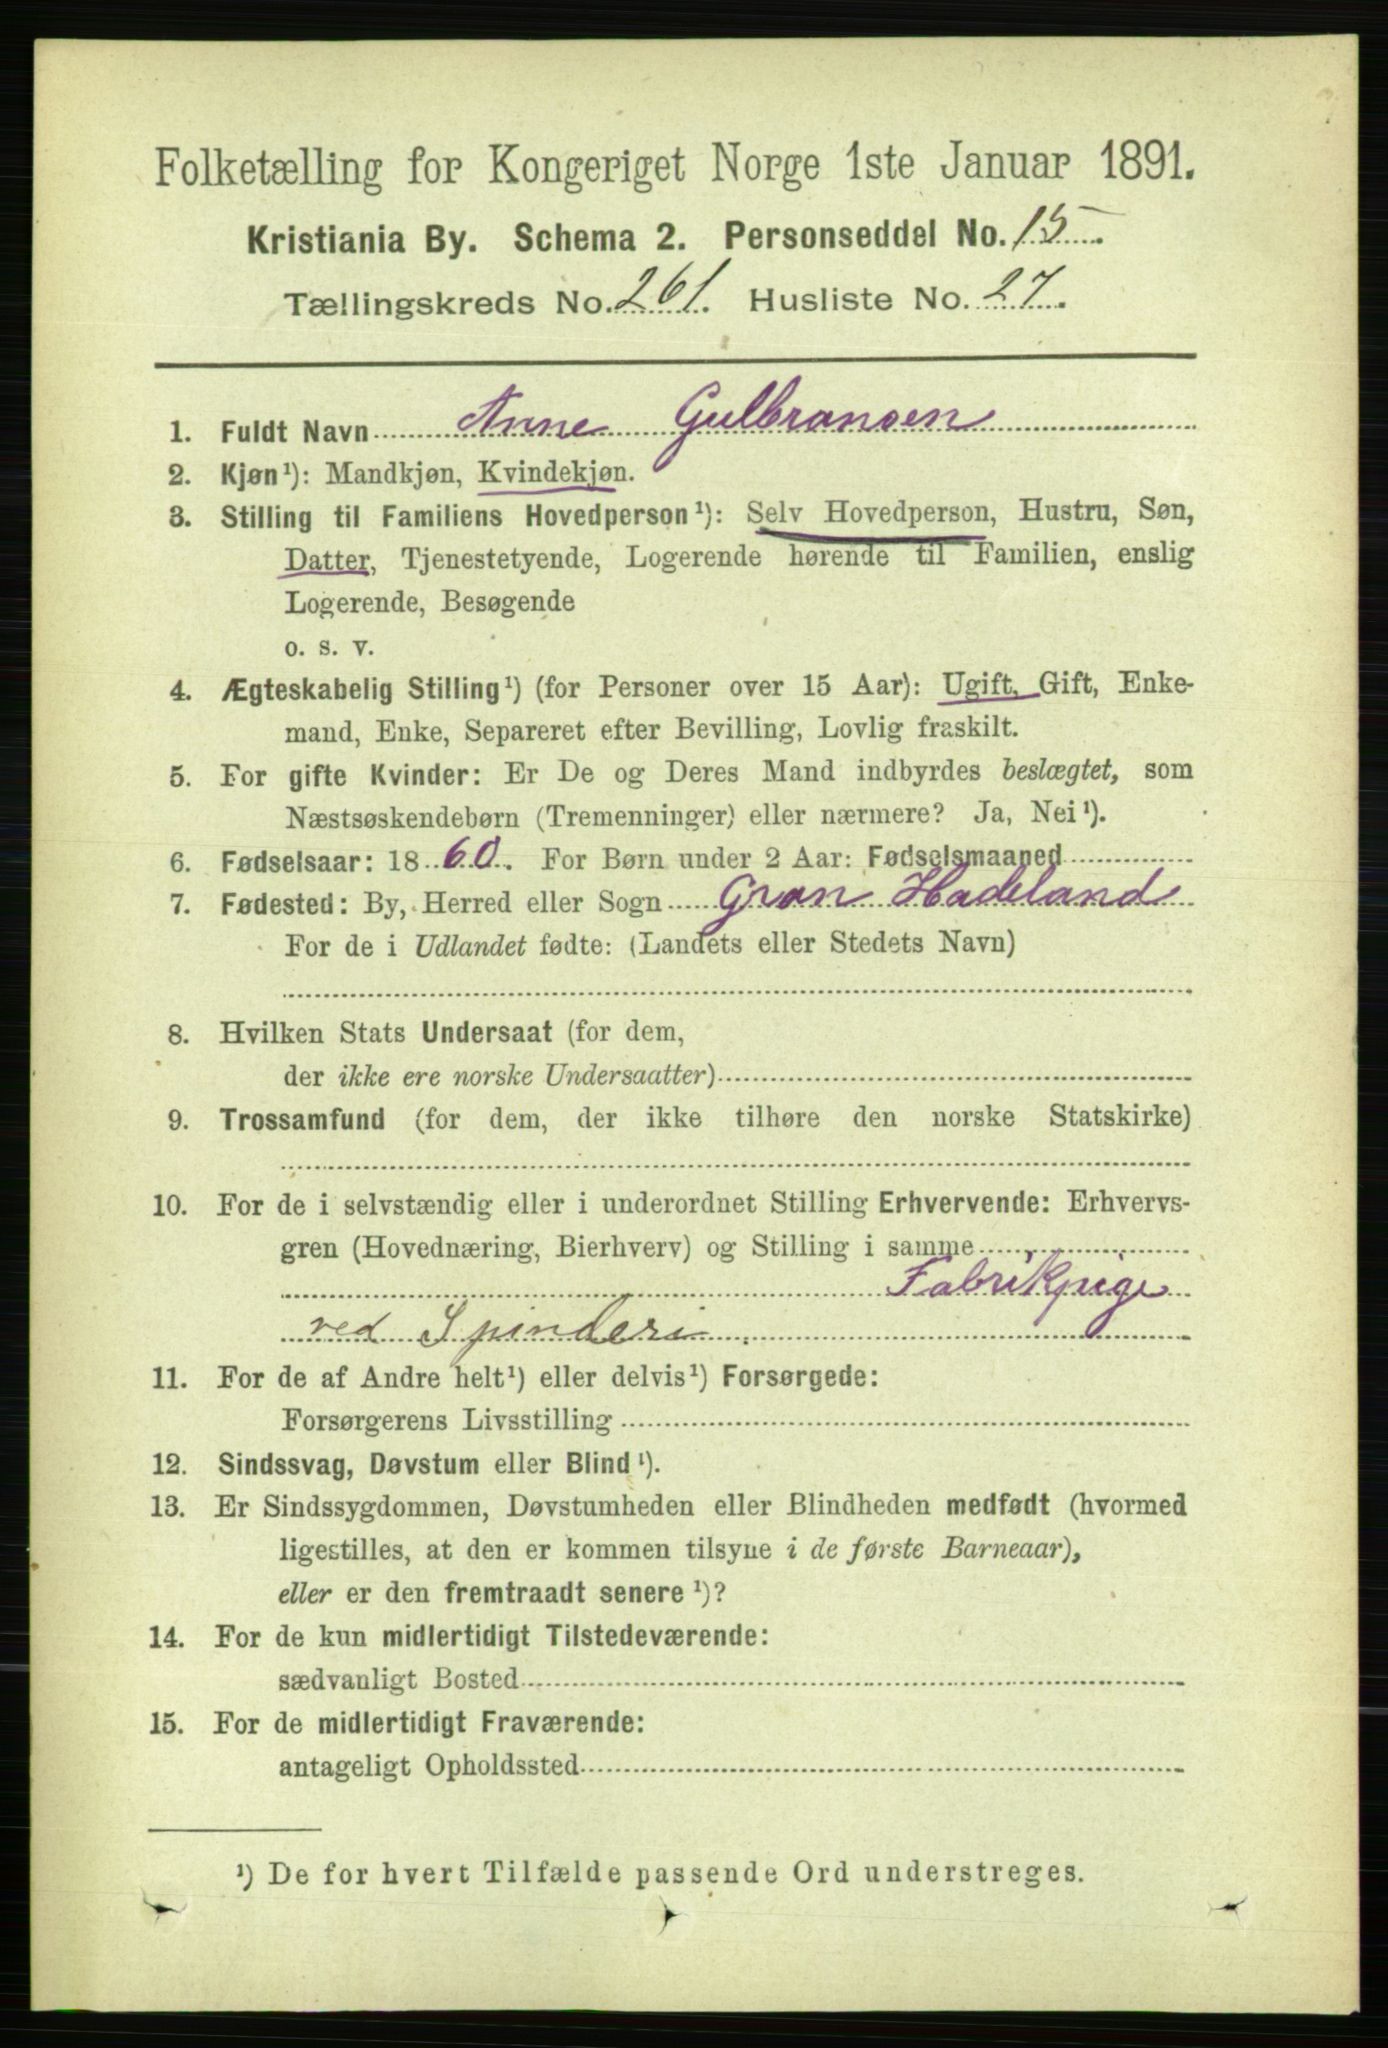 Folketælling for Kongeriget Norge 1ste Januar 1891.
Kristiania By. Schema 2. Personseddel No. 15.
Tællingskreds No. 261. Husliste No. 27.
1. Fuldt Navn Anne Gulbransen
2. Kjøn¹): Mandkjøn, Kvindekjøn.
3. Stilling til Familiens Hovedperson¹): Selv Hovedperson, Hustru, Søn,
Datter, Tjenestetyende, Logerende hørende til Familien, enslig
Logerende, Besøgende
o. s. v.
4. Ægteskabelig Stilling¹) (for Personer over 15 Aar): Ugift, Gift, Enke-
mand, Enke, Separeret efter Bevilling, Lovlig fraskilt.
5. For gifte Kvinder: Er De og Deres Mand indbyrdes beslægtet, som
Næstsøskendebørn (Tremenninger) eller nærmere? Ja, Nei¹).
6. Fødselsaar: 1860. For Børn under 2 Aar: Fødselsmaaned
7. Fødested: By, Herred eller Sogn Gran Hadeland
For de i Udlandet fødte: (Landets eller Stedets Navn)
8. Hvilken Stats Undersaat (for dem,
der ikke ere norske Undersaatter)
9. Trossamfund (for dem, der ikke tilhøre den norske Statskirke)
10. For de i selvstændig eller i underordnet Stilling Erhvervende: Erhvervs-
gren (Hovednæring, Bierhverv) og Stilling i samme
Fabrikpige
ved Spinderi.
11. For de af Andre helt¹) eller delvis¹) Forsørgede:
Forsørgerens Livsstilling
12. Sindssvag, Døvstum eller Blind¹).
13. Er Sindssygdommen, Døvstumheden eller Blindheden medfødt (hvormed
ligestilles, at den er kommen tilsyne i de første Barneaar),
eller er den fremtraadt senere¹)?
14. For de kun midlertidigt Tilstedeværende:
sædvanligt Bosted
15. For de midlertidigt Fraværende:
antageligt Opholdssted
¹) De for hvert Tilfælde passende Ord understreges.